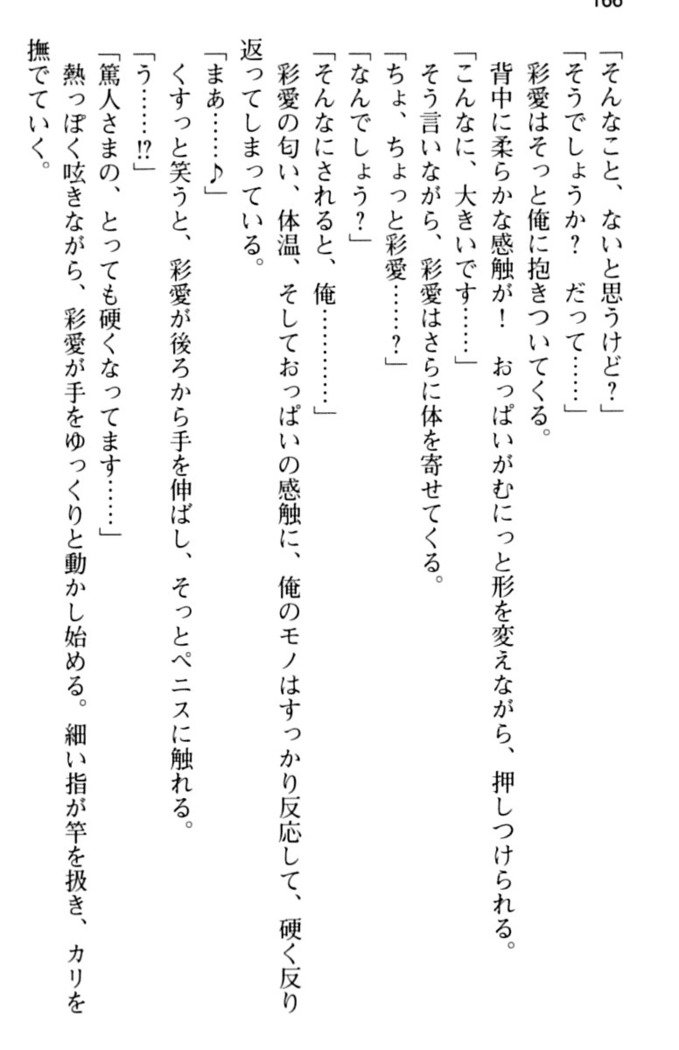 166
「そんなこと、ないと思うけど？」
「そうでしょうか？　だって……」
彩愛はそっと俺に抱きついてくる。
背中に柔らかな感触が！　おっぱいがむにっと形を変えながら、押しつけられる。
「こんなに、大きいです……」
そう言いながら、彩愛はさらに体を寄せてくる。
「ちょ、ちょっと彩愛……？」
「なんでしょう？」
「そんなにされると、俺…………」
彩愛の匂い、体温、そしておっぱいの感触に、俺のモノはすっかり反応して、硬く反り
返ってしまっている。
「まあ……♪」
くすっと笑うと、彩愛が後ろから手を伸ばし、そっとペニスに触れる。
「う……!?」
「篤人さまの、とっても硬くなってます……」
熱っぽく呟きながら、彩愛が手をゆっくりと動かし始める。細い指が竿を扱き、カリを
撫でていく。